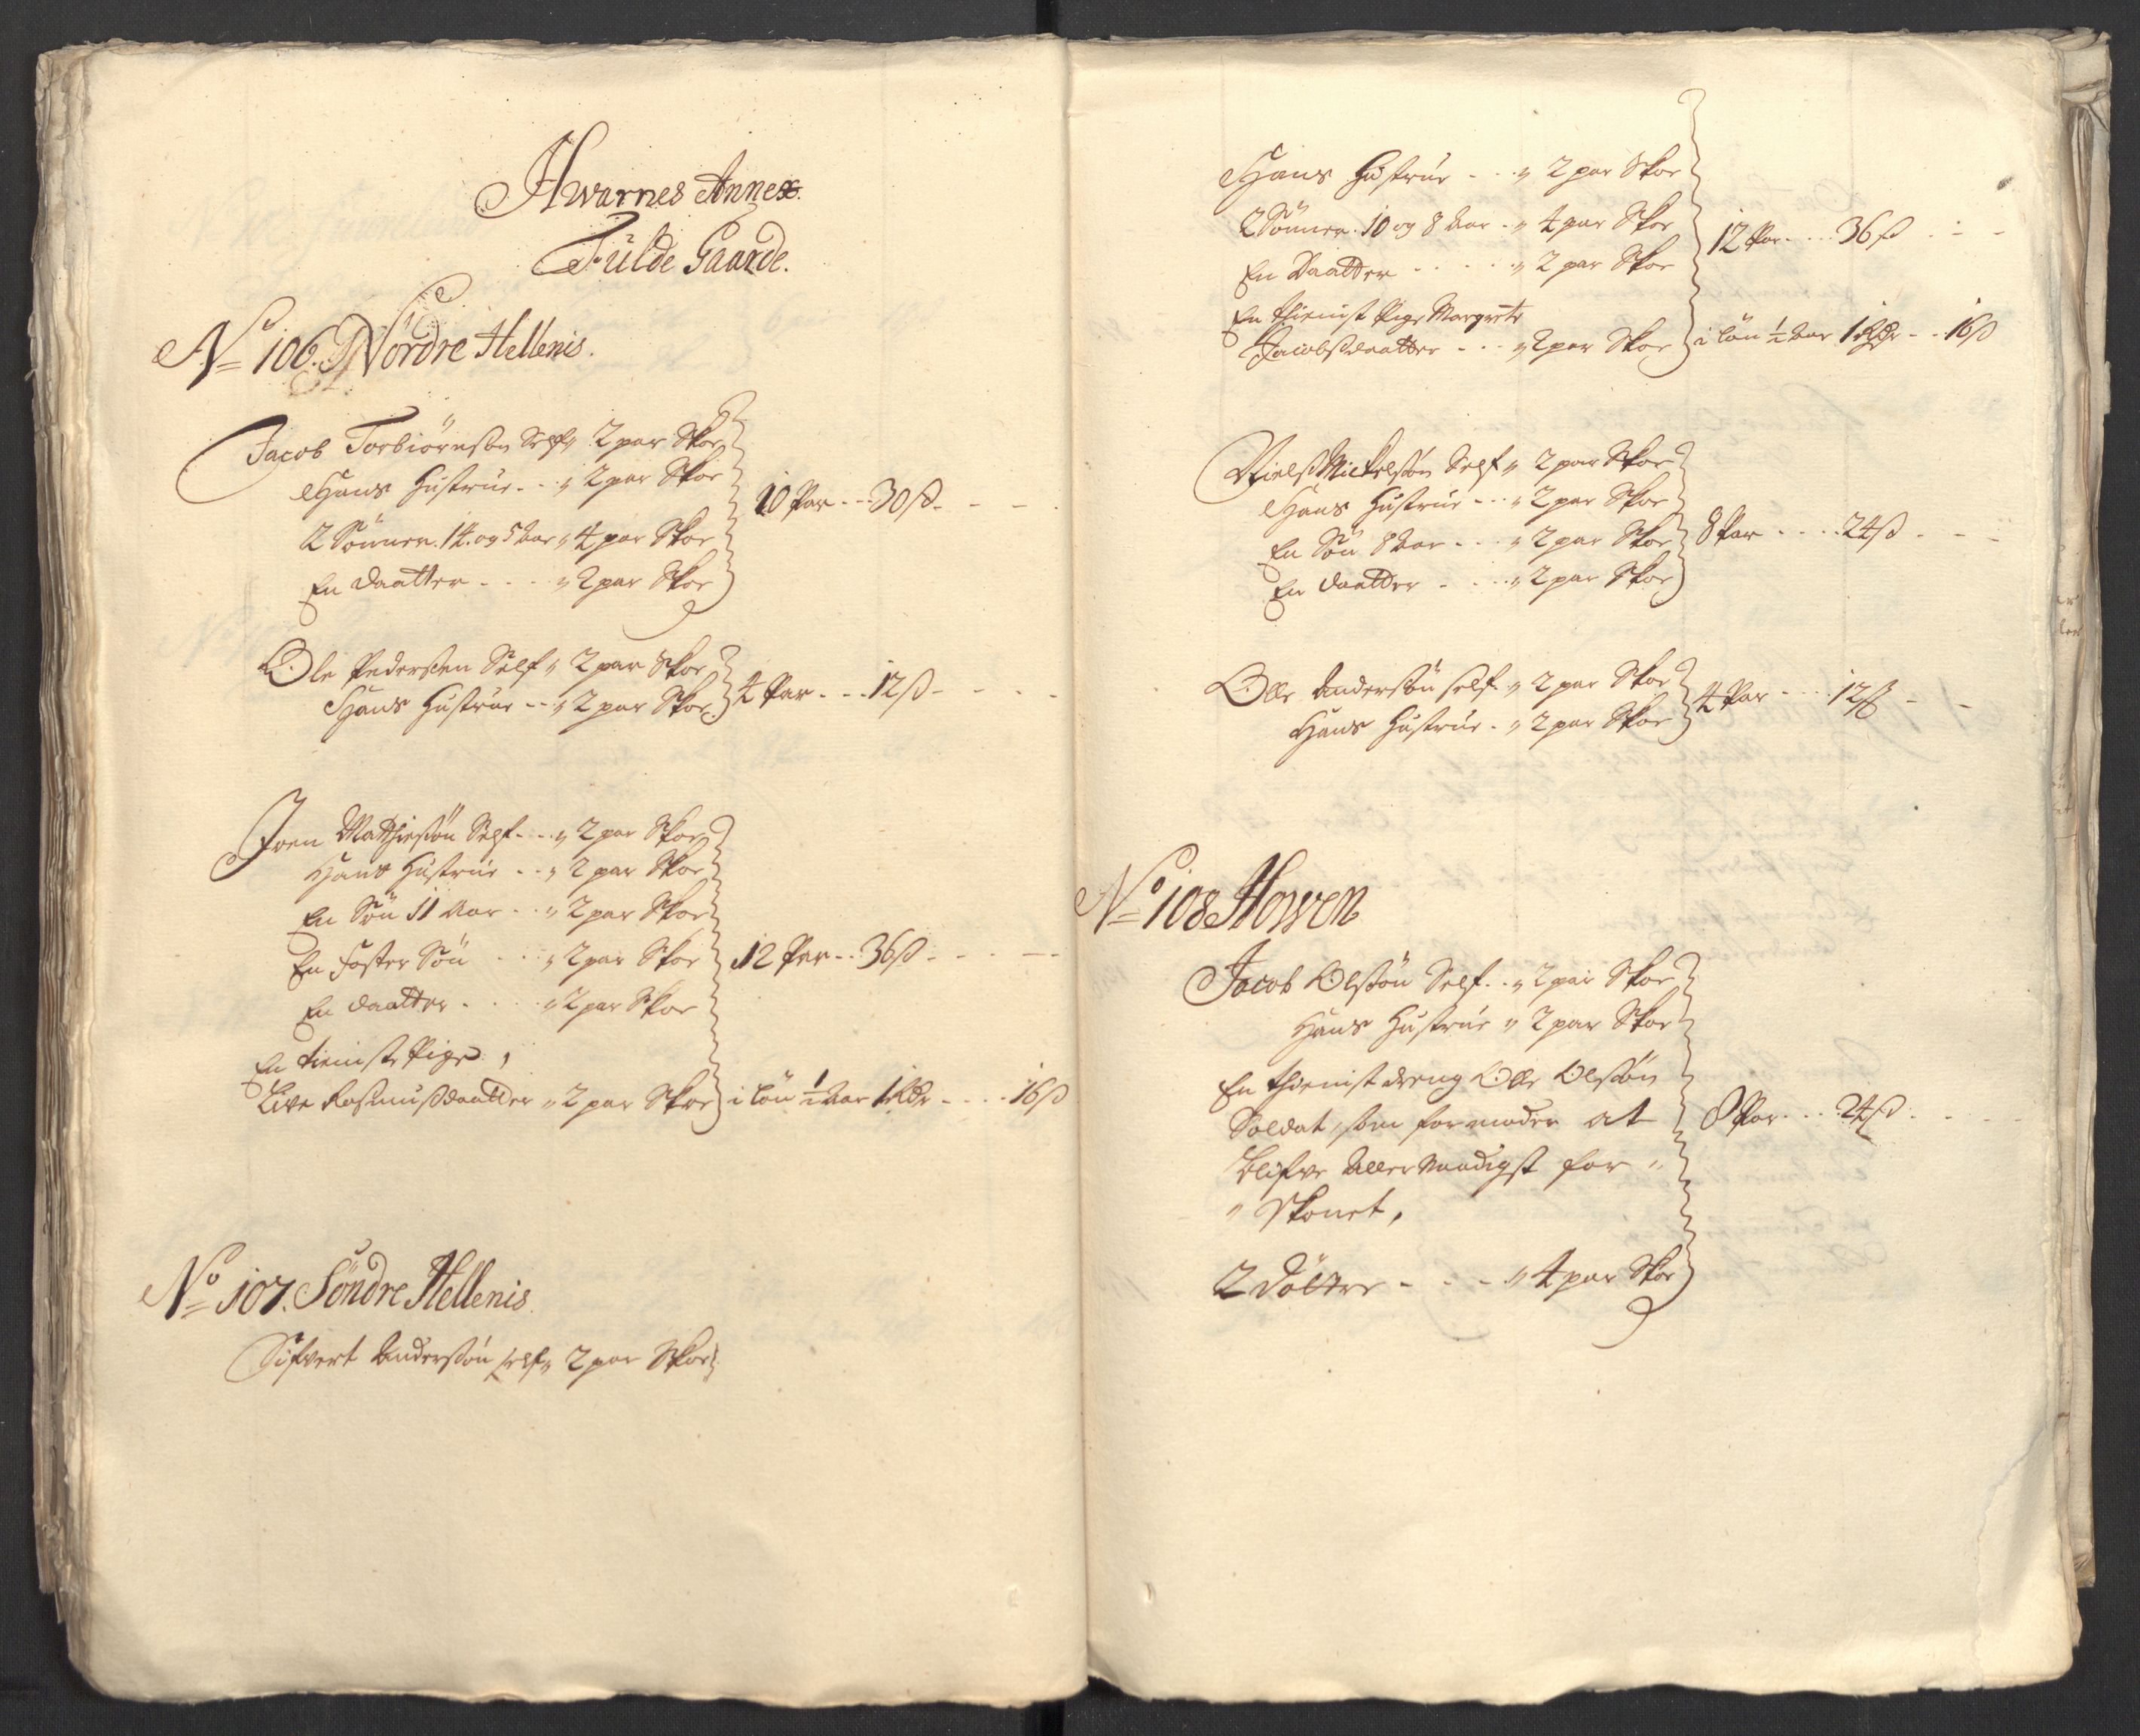 Hwarnes Annex.
Fulde Gaarde.
No 106. Nordre Hellenis.
Jacob Torbiörnsön Self „ 2 par Skoe
Hans Hustrue - - „ 2 par Skoe
2 Sönner. 14. og 5 Aar „ 4 par Skoe
En Daatter - - - „ 2 par Skoe
10 Par - - - 30 ß - - -
Ole Pedersen Self „ 2 par Skoe
Hans Hustrue - - „ 2 par Skoe
4 Par - - - 12 ß - - - -
Joen Matthiesön Self - - „ 2 par Skoe
Hans Hustrue - - „ 2 par Skoe
En Sön 11 Aar - - „ 2 par Skoe
En Foster Sön - - „ 2 par Skoe
En Daatter - - - „ 2 par Skoe
12 Par - - 36 ß - - - -
En tieniste Pige,
Live Rasmusdaatter „ 2 par Skoe i Lön ½ Aar 1 Rdr - - - - 16 ß
No 107. Söndre Hellenis.
Sifvert Andersön self „ 2 par Skoe
Hans Hustrue - - - „ 2 par Skoe
2 Sönner. 10 og 8 Aar - „ 4 par Skoe
En Daatter - - - - „ 2 par Skoe
12 Par - - - 36 ß - - -
En thienist Pige Margrete
Jacobsdaatter - - - „ 2 par Skoe i Lön ½ Aar 1 Rdr - - 16 ß
Nielß Mickelsön Self „ 2 par Skoe
Hans Hustrue - - - „ 2 par Skoe
En Sön 8 Aar - - - „ 2 par Skoe
En Daatter - - - - „ 2 par Skoe
8 Par - - - - 24 ß - - -
Olle Andersön self - „ 2 par Skoe
Hans Hustrue - „ 2 par Skoe
4 Par - - - 12 ß - -
No 108 Howen
Jacob Olsön Self - - „ 2 par Skoe
Hans Hustrue „ 2 par Skoe
En thienist dreng Olle Olsön
Soldat, som formoder at
blifve Allernaadigst for „
„ Skonet,
8 Par - - - 24 ß - -
2 Döttre - - - - „ 4 par Skoe